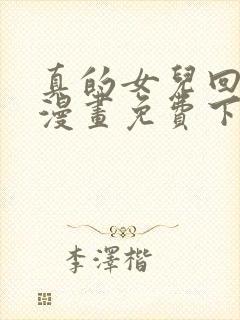 真的女兒回
漫畫免費下
李澤楷